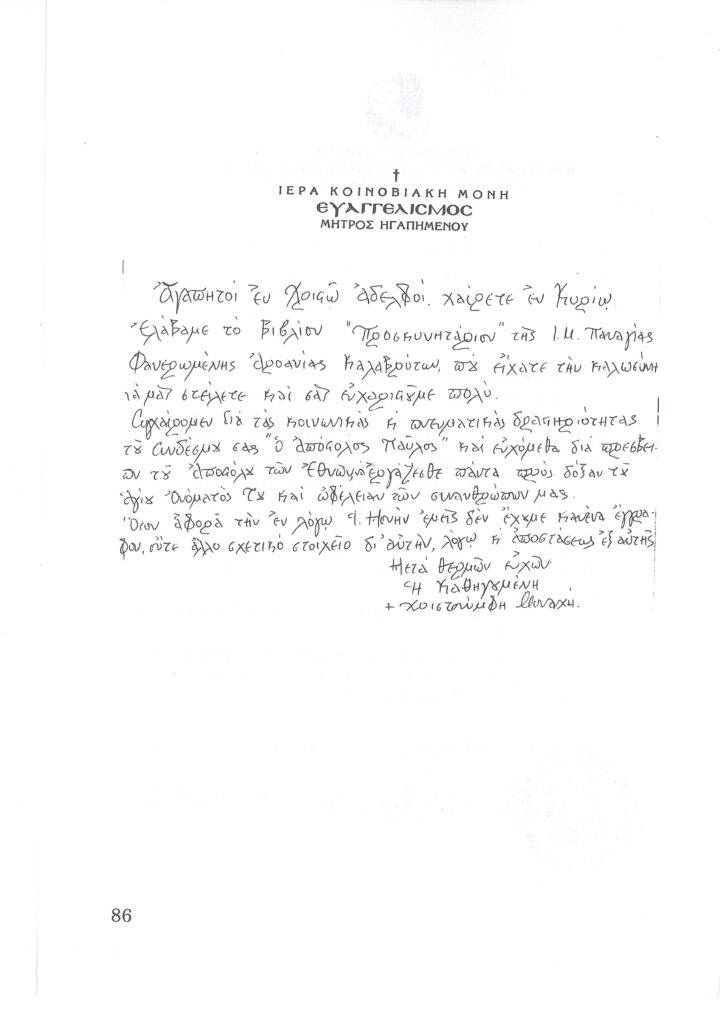 †
ΙΕΡΑ ΚΟΙΝΟΒΙΑΚΗ ΜΟΝΗ
ΕΥΑΓΓΕΛΙΣΜΟΣ
ΜΗΤΡΟΣ ΗΓΑΠΗΜΕΝΟΥ
Ἀγαπητοί ἐν Χριστῷ ἀδελφοί, χαίρετε ἐν Κυρίῳ.
Ἐλάβαμε τό βιβλίον "Προσκυνητάριον" τῆς Ι.Μ. Παναγίας
Φανερωμένης Ἀροανίας Καλαβρύτων, πού εἴχατε τήν καλωσύνη
νά μᾶς στείλετε καί σᾶς εὐχαριστοῦμε πολύ.
Συγχαίρομεν διά τάς κοινωνικάς κ πνευματικάς δραστηριότητας
τοῦ Συνδέσμου σας "ὁ Ἀπόστολος Παῦλος" καί εὐχόμεθα διά πρεσβει-
ῶν τοῦ Ἀποστόλου τῶν Ἐθνῶν νά ἐργάζεσθε πάντα πρός δόξαν τοῦ
Ἁγίου Ὀνόματός Του καί ὠφέλειαν τῶν συνανθρώπων μας.
Ὅσον ἀφορᾶ τήν ἐν λόγῳ Ἱ. Μονήν ἐμεῖς δέν ἔχουμε κανένα ἔγγρα-
φον, οὔτε ἄλλο σχετικό στοιχεῖο δι' αὐτήν, λόγῳ κ ἀποστάσεως ἐξ αὐτῆς
Μετά θερμῶν εὐχῶν
Ἡ Καθηγουμένη
+ Χριστονύμφη Μοναχή.
86